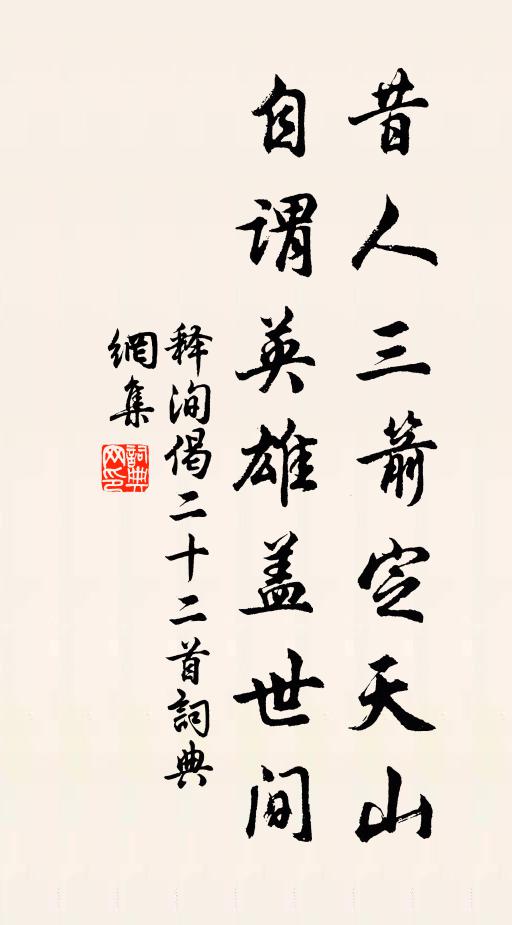 昔人三箭定天山
自谓英雄盖世间
释洵偈二十二首詞典
網集
詞典网印